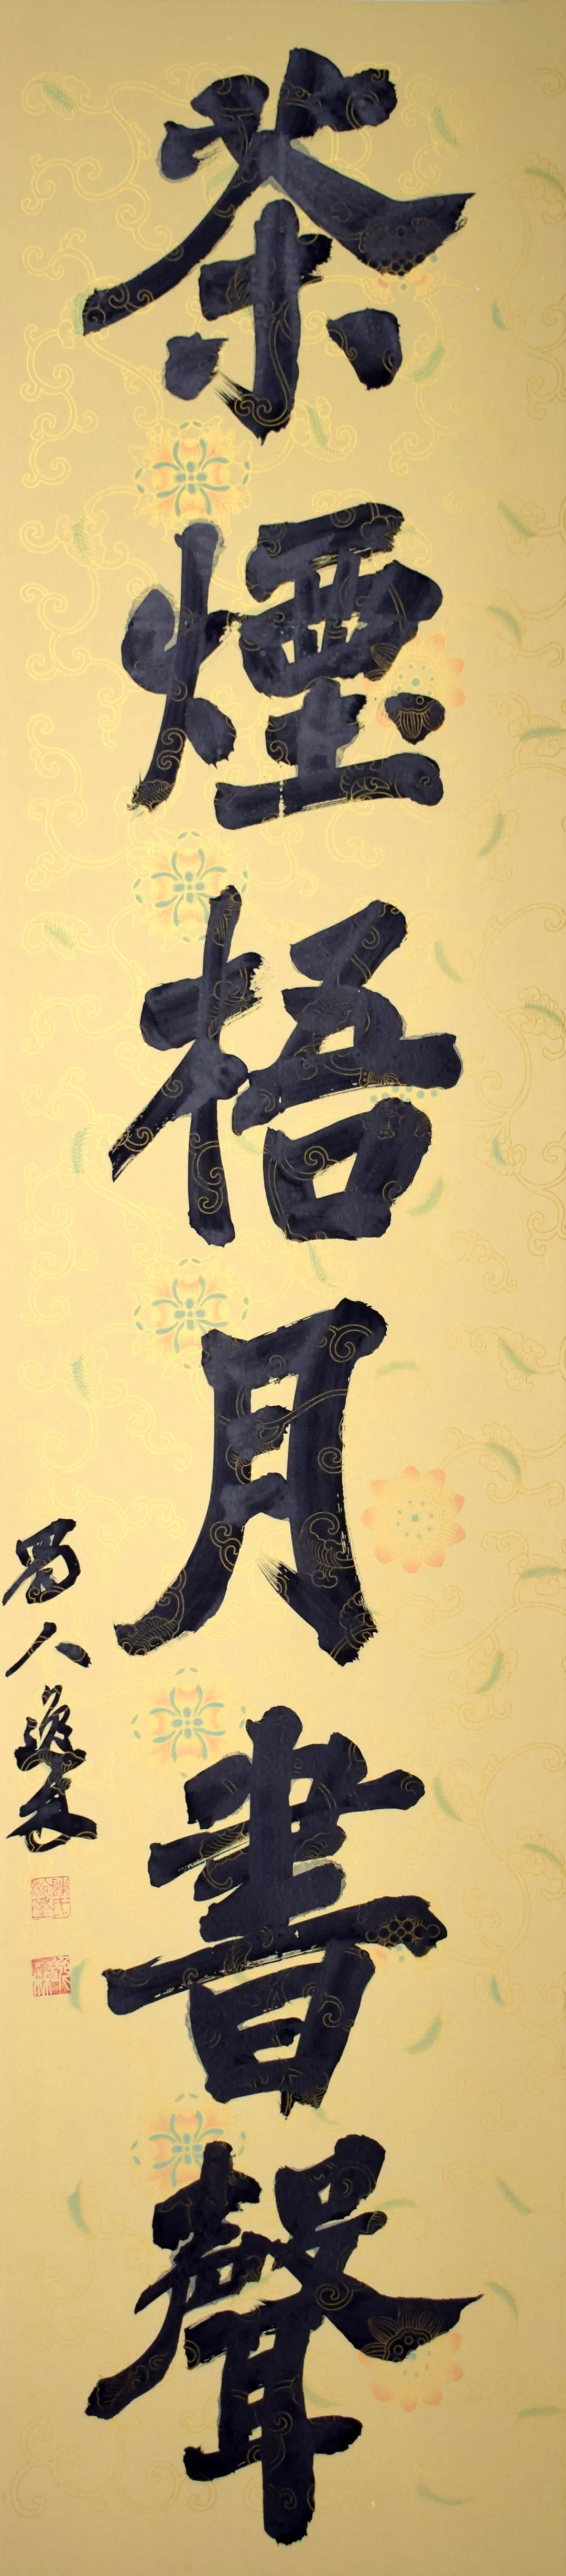 茶煙梧月書聲
蜀人逸夫